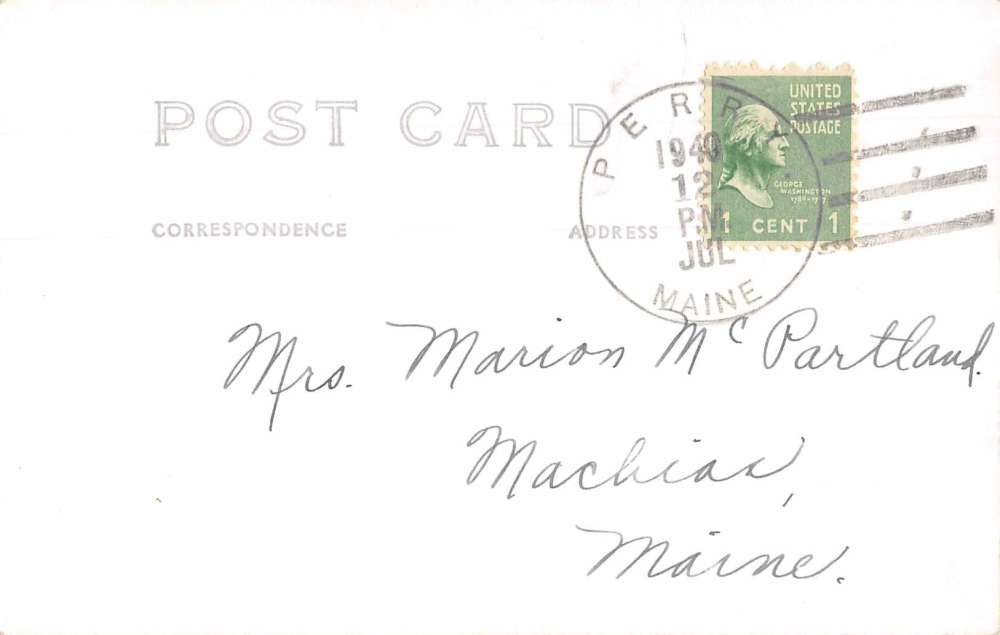 POST CARD
CORRESPONDENCE
ADDRESS
PERRY
1940
12
PM
JUL
MAINE
UNITED
STATES
POSTAGE
GEORGE
WASHINGTON
1 CENT 1
Mrs. Marion McPartland.
Machias,
Maine.